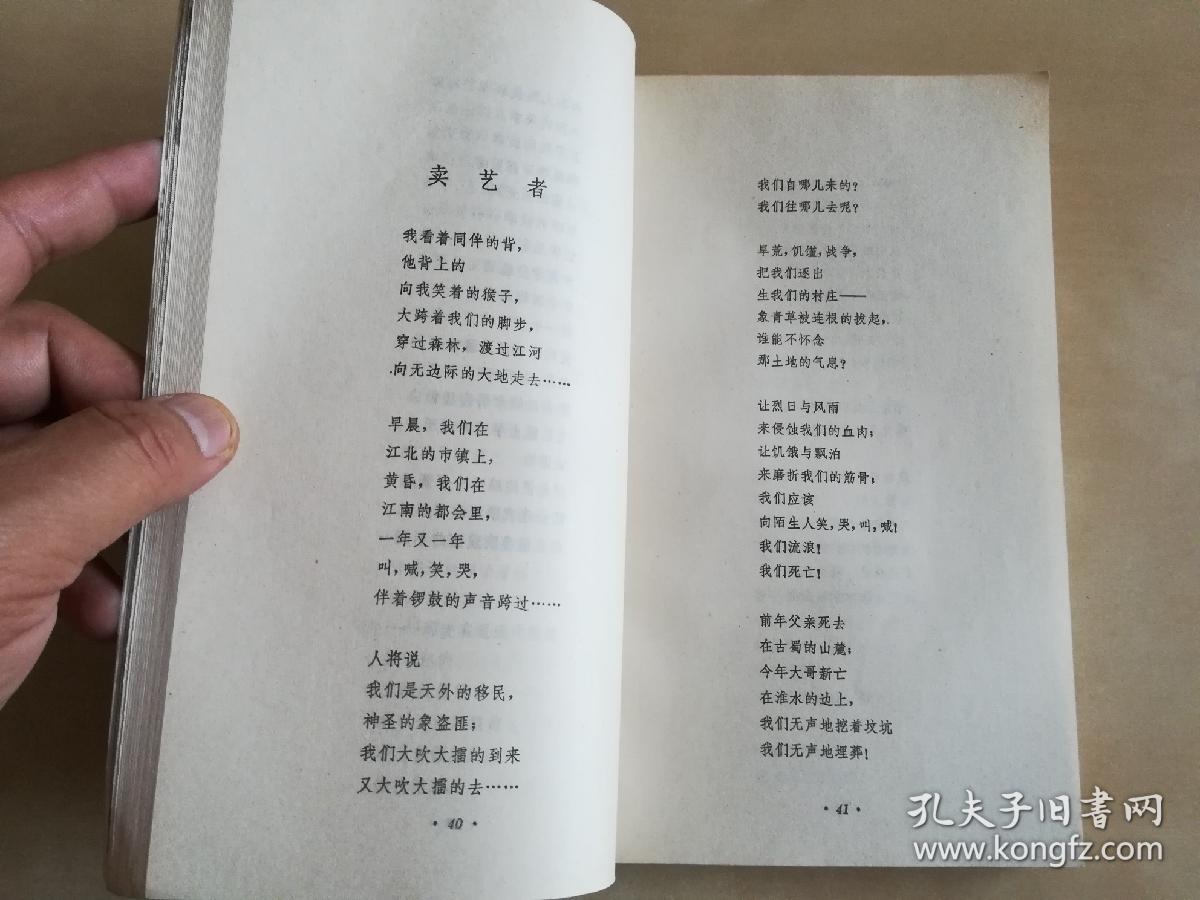 卖艺者
我看着同伴的背，
他背上的
向我笑着的猴子，
大跨着我们的脚步，
穿过森林，渡过江河
向无边际的大地走去……
早晨，我们在
江北的市镇上，
黄昏，我们在
江南的都会里，
一年又一年
叫，喊，笑，哭，
伴着锣鼓的声音跨过……
人将说
我们是天外的移民，
神圣的象盗匪；
我们大吹大擂的到来
又大吹大擂的去……
·40·
我们自哪儿来的？
我们往哪儿去呢？
旱荒，饥馑，战争，
把我们逐出
生我们的村庄——
象青草被连根的拔起，
谁能不怀念
那土地的气息？
让烈日与风雨
来侵蚀我们的血肉；
让饥饿与飘泊
来磨折我们的筋骨；
我们应该
向陌生人笑，哭，叫，喊！
我们流浪！
我们死亡！
前年父亲死去
在古蜀的山麓；
今年大哥新亡
在淮水的边上，
我们无声地挖着坟坑
我们无声地埋葬！
·41·
孔夫子旧书网
www.kongfz.com